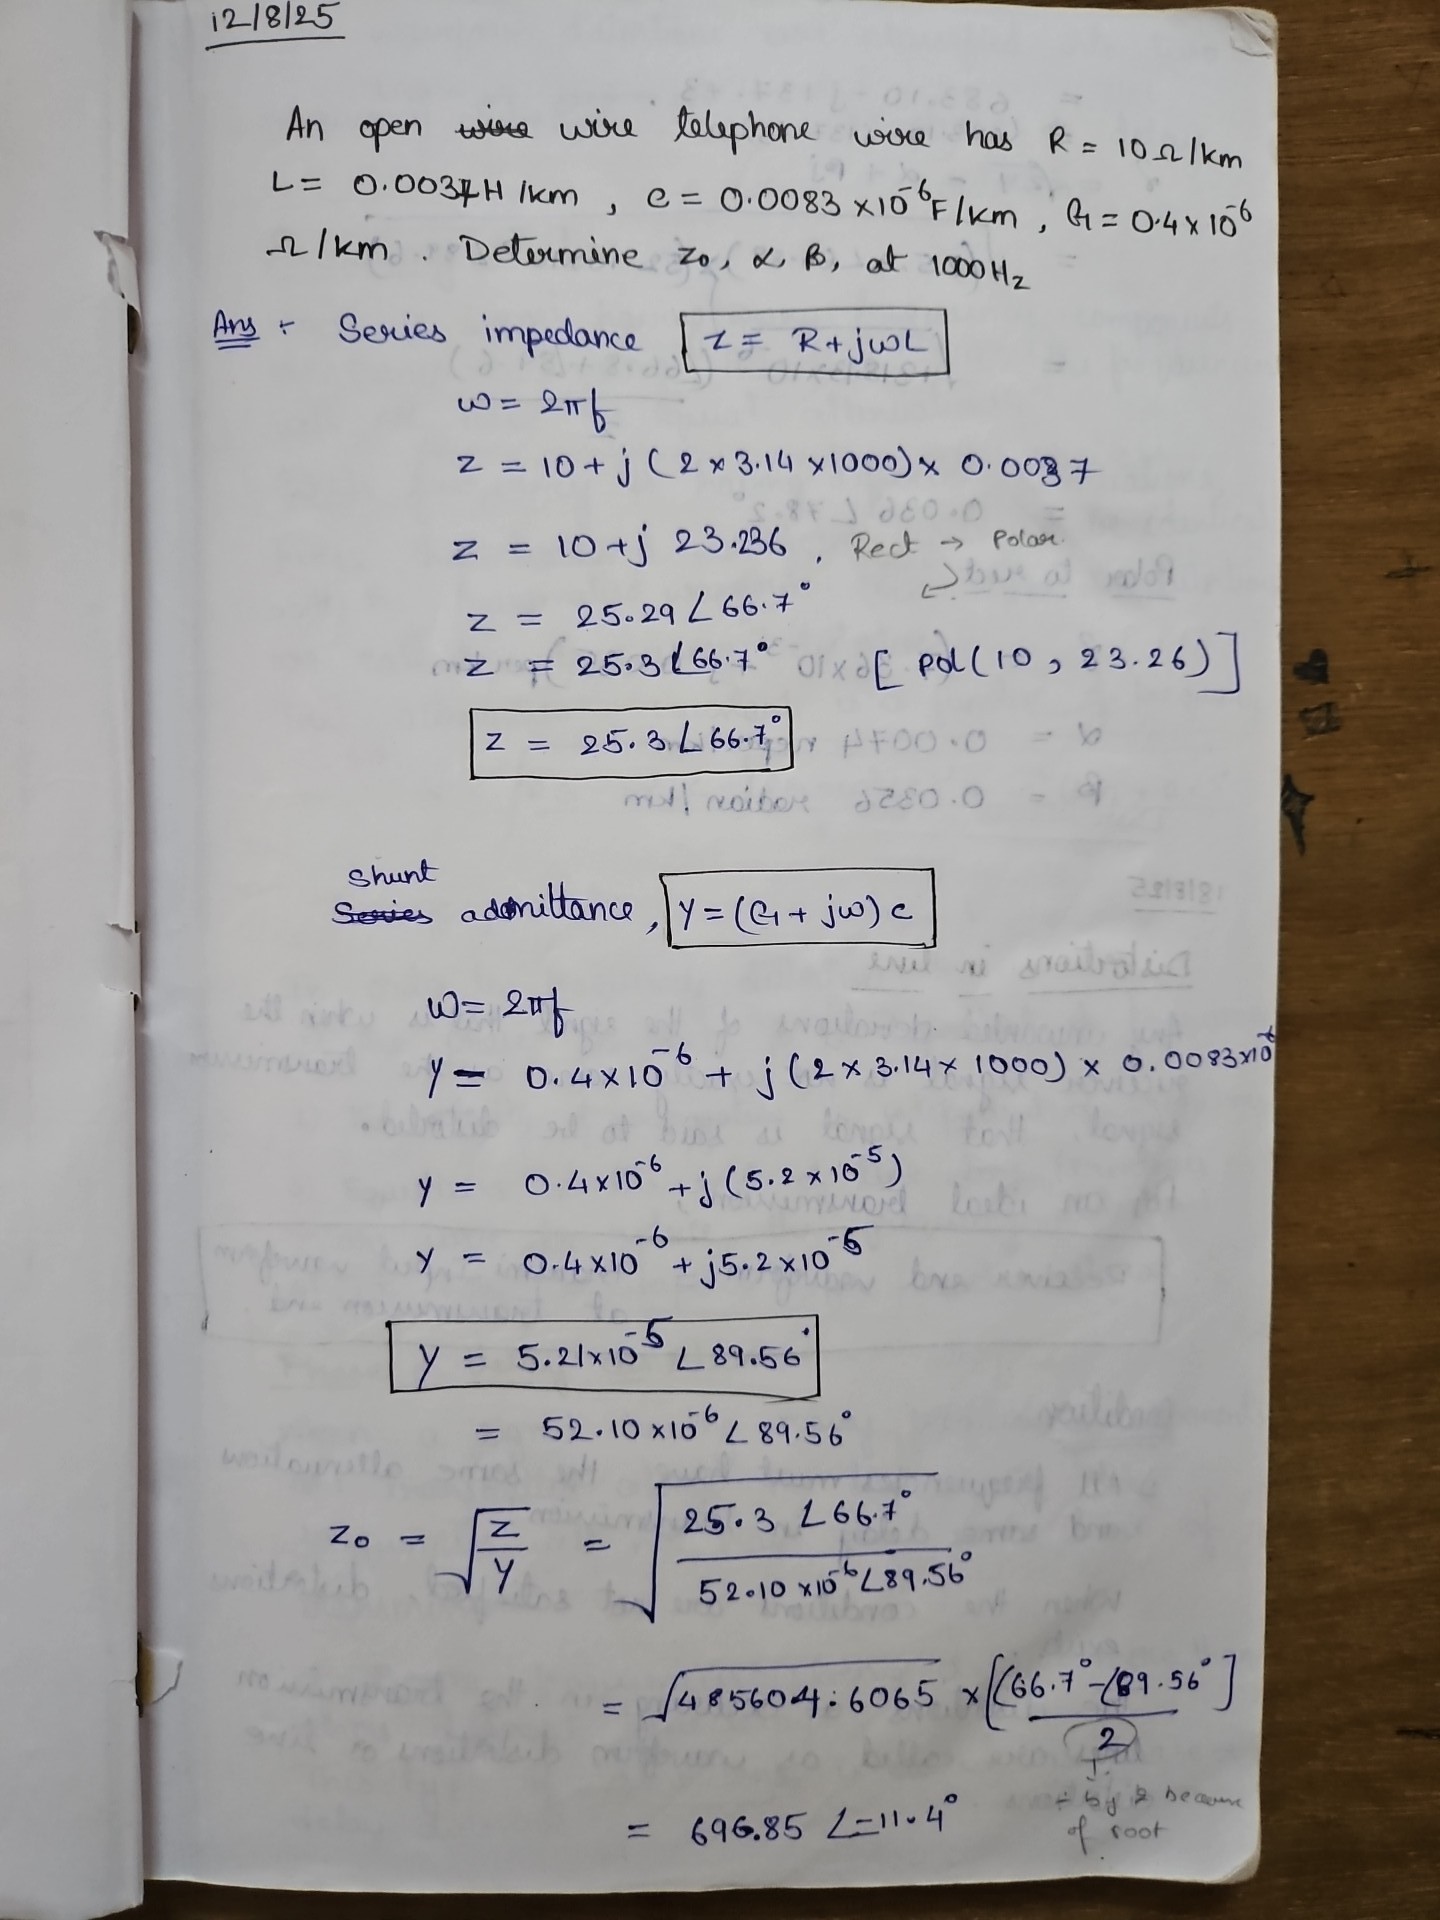 12/8/25
An open wire wire telephone wire has R = 10Ω/km
L = 0.0037H/km , C = 0.0083 ×10⁻⁶F/km , G = 0.4×10⁻⁶
Ω/km . Determine z₀, α, β, at 1000Hz
Ans :- Series impedance z = R+jωL
ω = 2πf
z = 10+j (2×3.14×1000)× 0.0037
z = 10+j 23.236 , Rect → Polar
z = 25.29∠66.7°
z = 25.3∠66.7° [pol(10, 23.26)]
z = 25.3∠66.7°
Shunt
Series admittance, Y=(G+jω)c
ω= 2πf
Y= 0.4×10⁻⁶ + j(2×3.14×1000) × 0.0083×10⁻⁶
Y = 0.4×10⁻⁶ +j(5.2×10⁻⁵)
Y = 0.4×10⁻⁶ +j5.2×10⁻⁵
Y = 5.21×10⁻⁵ ∠89.56°
= 52.10×10⁻⁶ ∠89.56°
z₀ = √(z/Y) = √(25.3 ∠66.7° / 52.10×10⁻⁶∠89.56°)
= √485604.6065 × [(66.7°-(89.56°] / 2
÷ by 2 because
of root
= 696.85 ∠-11.4°